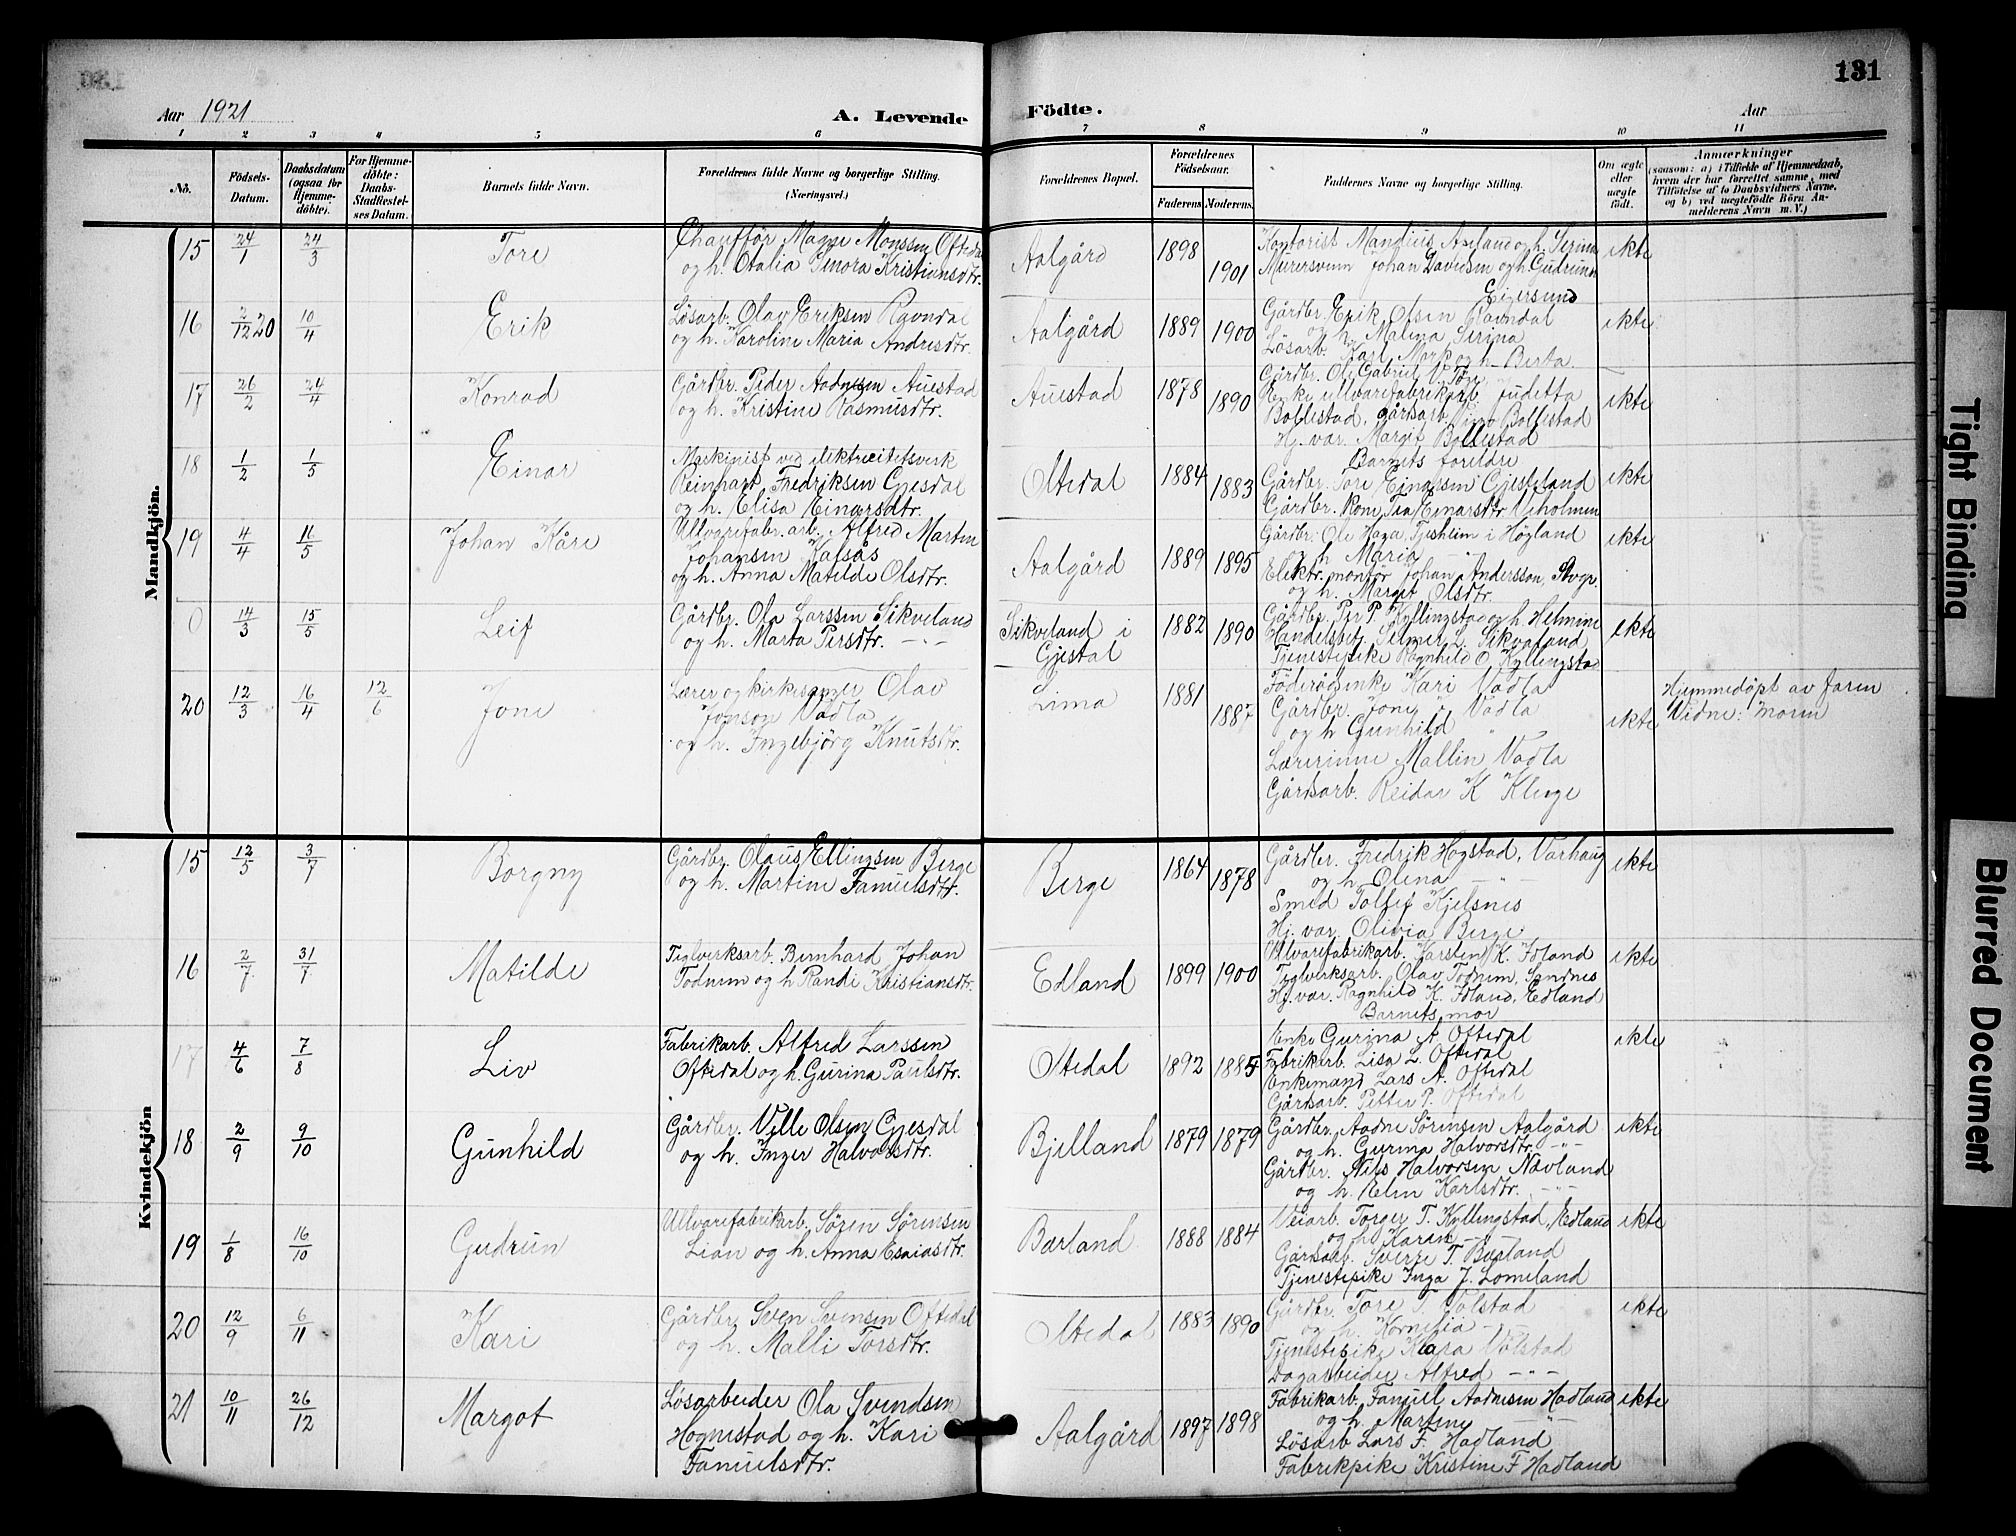 131
Aar 1921
A. Levende
Födte.
Aar
1 2 3 4 5 6 7 8 9 10 11
No.
Födsels-Datum.
Daabsdatum (ogsaa for Hjemme-döbte).
For Hjemme-döbte: Daabs-Stadfæstel-ses Datum.
Barnets fulde Navn.
Forældrenes fulde Navne og borgerlige Stilling. (Næringsvei.)
Forældrenes Bopæl.
Forældrenes Födselsaar.
Faderens. Moderens.
Faddernes Navne og borgerlige Stilling.
Om ægte eller uægte födt.
Anmærkninger
(saasom: a) i Tilfælde af Hjemmedaab, hvem der har forrettet samme, med Tilföielse af to Daabsvidners Navne, og b) ved uægtefödte Börn An-melderens Navn m. V.)
Mandkjön.
15 24/1 24/3 Tore
Chaufför Magne Monssen Oftedal
og h. Otalia Kristiansdtr.
Aalgård 1898 1901
Kontorist Mandius Axeland og h. Serina
Murersvenn Johan Davidsen og h. Gudrun
Eigersund
ekte
16 2/12 20 10/4 Erik
Løsarb. Olav Eriksen Ravndal
og h. Karoline Maria Andresdtr.
Aalgård 1889 1900
Gårdbr. Erik Olsen Ravndal
og h. Malena Serina
Løsarb. Karl Mark og h. Berta
ekte
17 26/2 24/4 Konrad
Gårdbr. Peder Aadnesen Auestad
og h. Kristine Rasmusdtr.
Auestad 1878 1890
Gårdbr. Ole Gabriel V. Tør
Enke ullvarefabrikarb. Judetta
Bollestad, gårdsarb. Bollestad
Hj. var. Margit Bollestad
ekte
18 1/2 1/5 Einar
Maskinist ved elektrecitetsverk
Reinhart Fredriksen Gjesdal
og h. Elisa Einarsdtr.
Oltedal 1884 1883
Barnets foreldre
Gårdbr. Tore Einarsen Gjesteland
Gårdbr. Kone Tea Einarsdtr. Veholmen
ekte
19 4/4 16/5 Johan Kåre
Ullvarefabr. arb. Alfred Martin
Johansen Kalsås
og h. Anna Matilde Olsdtr.
Aalgård 1889 1895
Gårdbr. Ole Haga, Tjesheim i Høgland
og h. Maria -"-
Elektr. montør Johan Andersson, Stvgr.
og h. Margit Olsdtr.
ekte
0 14/3 15/5 Leif
Gårdbr. Ola Larssen Sikveland
og h. Marta Persdtr. -"-
Sikveland i
Gjestal
1882 1890
Gårdbr. Per P. Kyllingstad og h. Helmine
Handelsbetj. Selmer L. Sikveland
Tjenestepike Ragnhild O. Kyllingstad
ekte
20 12/3 16/4 12/6 Jone
Lærer og kirkesanger Olav
Jonson Vadla
og h. Ingebjörg Knutsdtr.
Lima 1881 1887
Føderådsenke Kari Vadla
Gårdbr. Jone Vadla
og h. Gunhild "
Lærerinne Mallin Vadla
Gårdsarb. Reidar K. Kluge
ekte
Hjemmedøpt av faren
Vidne: moren
Kvindekjön
15 12/5 3/7 Borgny
Gårdbr. Olaus Ellingsen Berge
og h. Martine Tamuelsdtr.
Berge 1864 1878
Gårdbr. Fredrik Hogstad, Varhaug
og h. Olena -"-
Smed Tollef Kjelsnes
Hj. var. Olivia Berge
ekte
16 2/7 31/7 Matilde
Teglverksarb. Bernhard Johan
Todnem og h. Randi Kristiansdtr.
Edland 1899 1900
Ullvarefabrikarb. Karsten K. Idland
Teglverksarb. Olav Todnem, Sandnes
Hj. var. Ragnhild K. Idland, Edland
Barnets mor
ekte
17 4/6 7/8 Liv
Fabrikarb. Alfred Larssen
Oftedal og h. Gurina Paulsdtr.
Oltedal 1892 1885
Enke Gurina A. Oftedal
Fabrikarb. Lisa L. Oftedal
Enkemand Lars A. Oftedal
Gårdsarb. Petter P. Oftedal
ekte
18 2/9 9/10 Gunhild
Gårdbr. Ville Olsen Gjesdal
og h. Inger Halvorsdtr.
Bjelland 1879 1879
Gårdbr. Aadne Sörensen Aalgård
og h. Gurina Halvorsdtr. -"-
Gårdbr. Nils Halvorsen Nævland
og h. Elen Karlsdtr. -"-
ekte
19 1/8 16/10 Gudrun
Ullvarefabrikarb. Sören Sörensen
Lian og h. Anna Esaiasdtr.
Bærland 1888 1884
Veiarb. Torger T. Kyllingstad, Edland
og h. Karen -"-
Gårdsarb. Sverre T. Bærland
Tjenestepike Inga J. Lomeland
ekte
20 12/9 6/11 Kari
Gårdbr. Sven Svensen Oftedal
og h. Malli Torsdtr.
Oltedal 1883 1890
Gårdbr. Tore T. Volstad
og h. Kornelia -"-
Tjenestepike Klara Volstad
Dagarbeider Alfred -"-
ekte
21 10/11 26/12 Margot
Løsarbeider Ola Svendsen
Hognestad og h. Kari
Tamuelsdtr.
Aalgård 1897 1898
Fabrikarb. Tamuel Aadnesen Hadland
og h. Martine -"-
Løsarb Lars T. Hadland
Fabrikpike Kristine T. Hadland
ekte
Tight Binding
Blurred Document